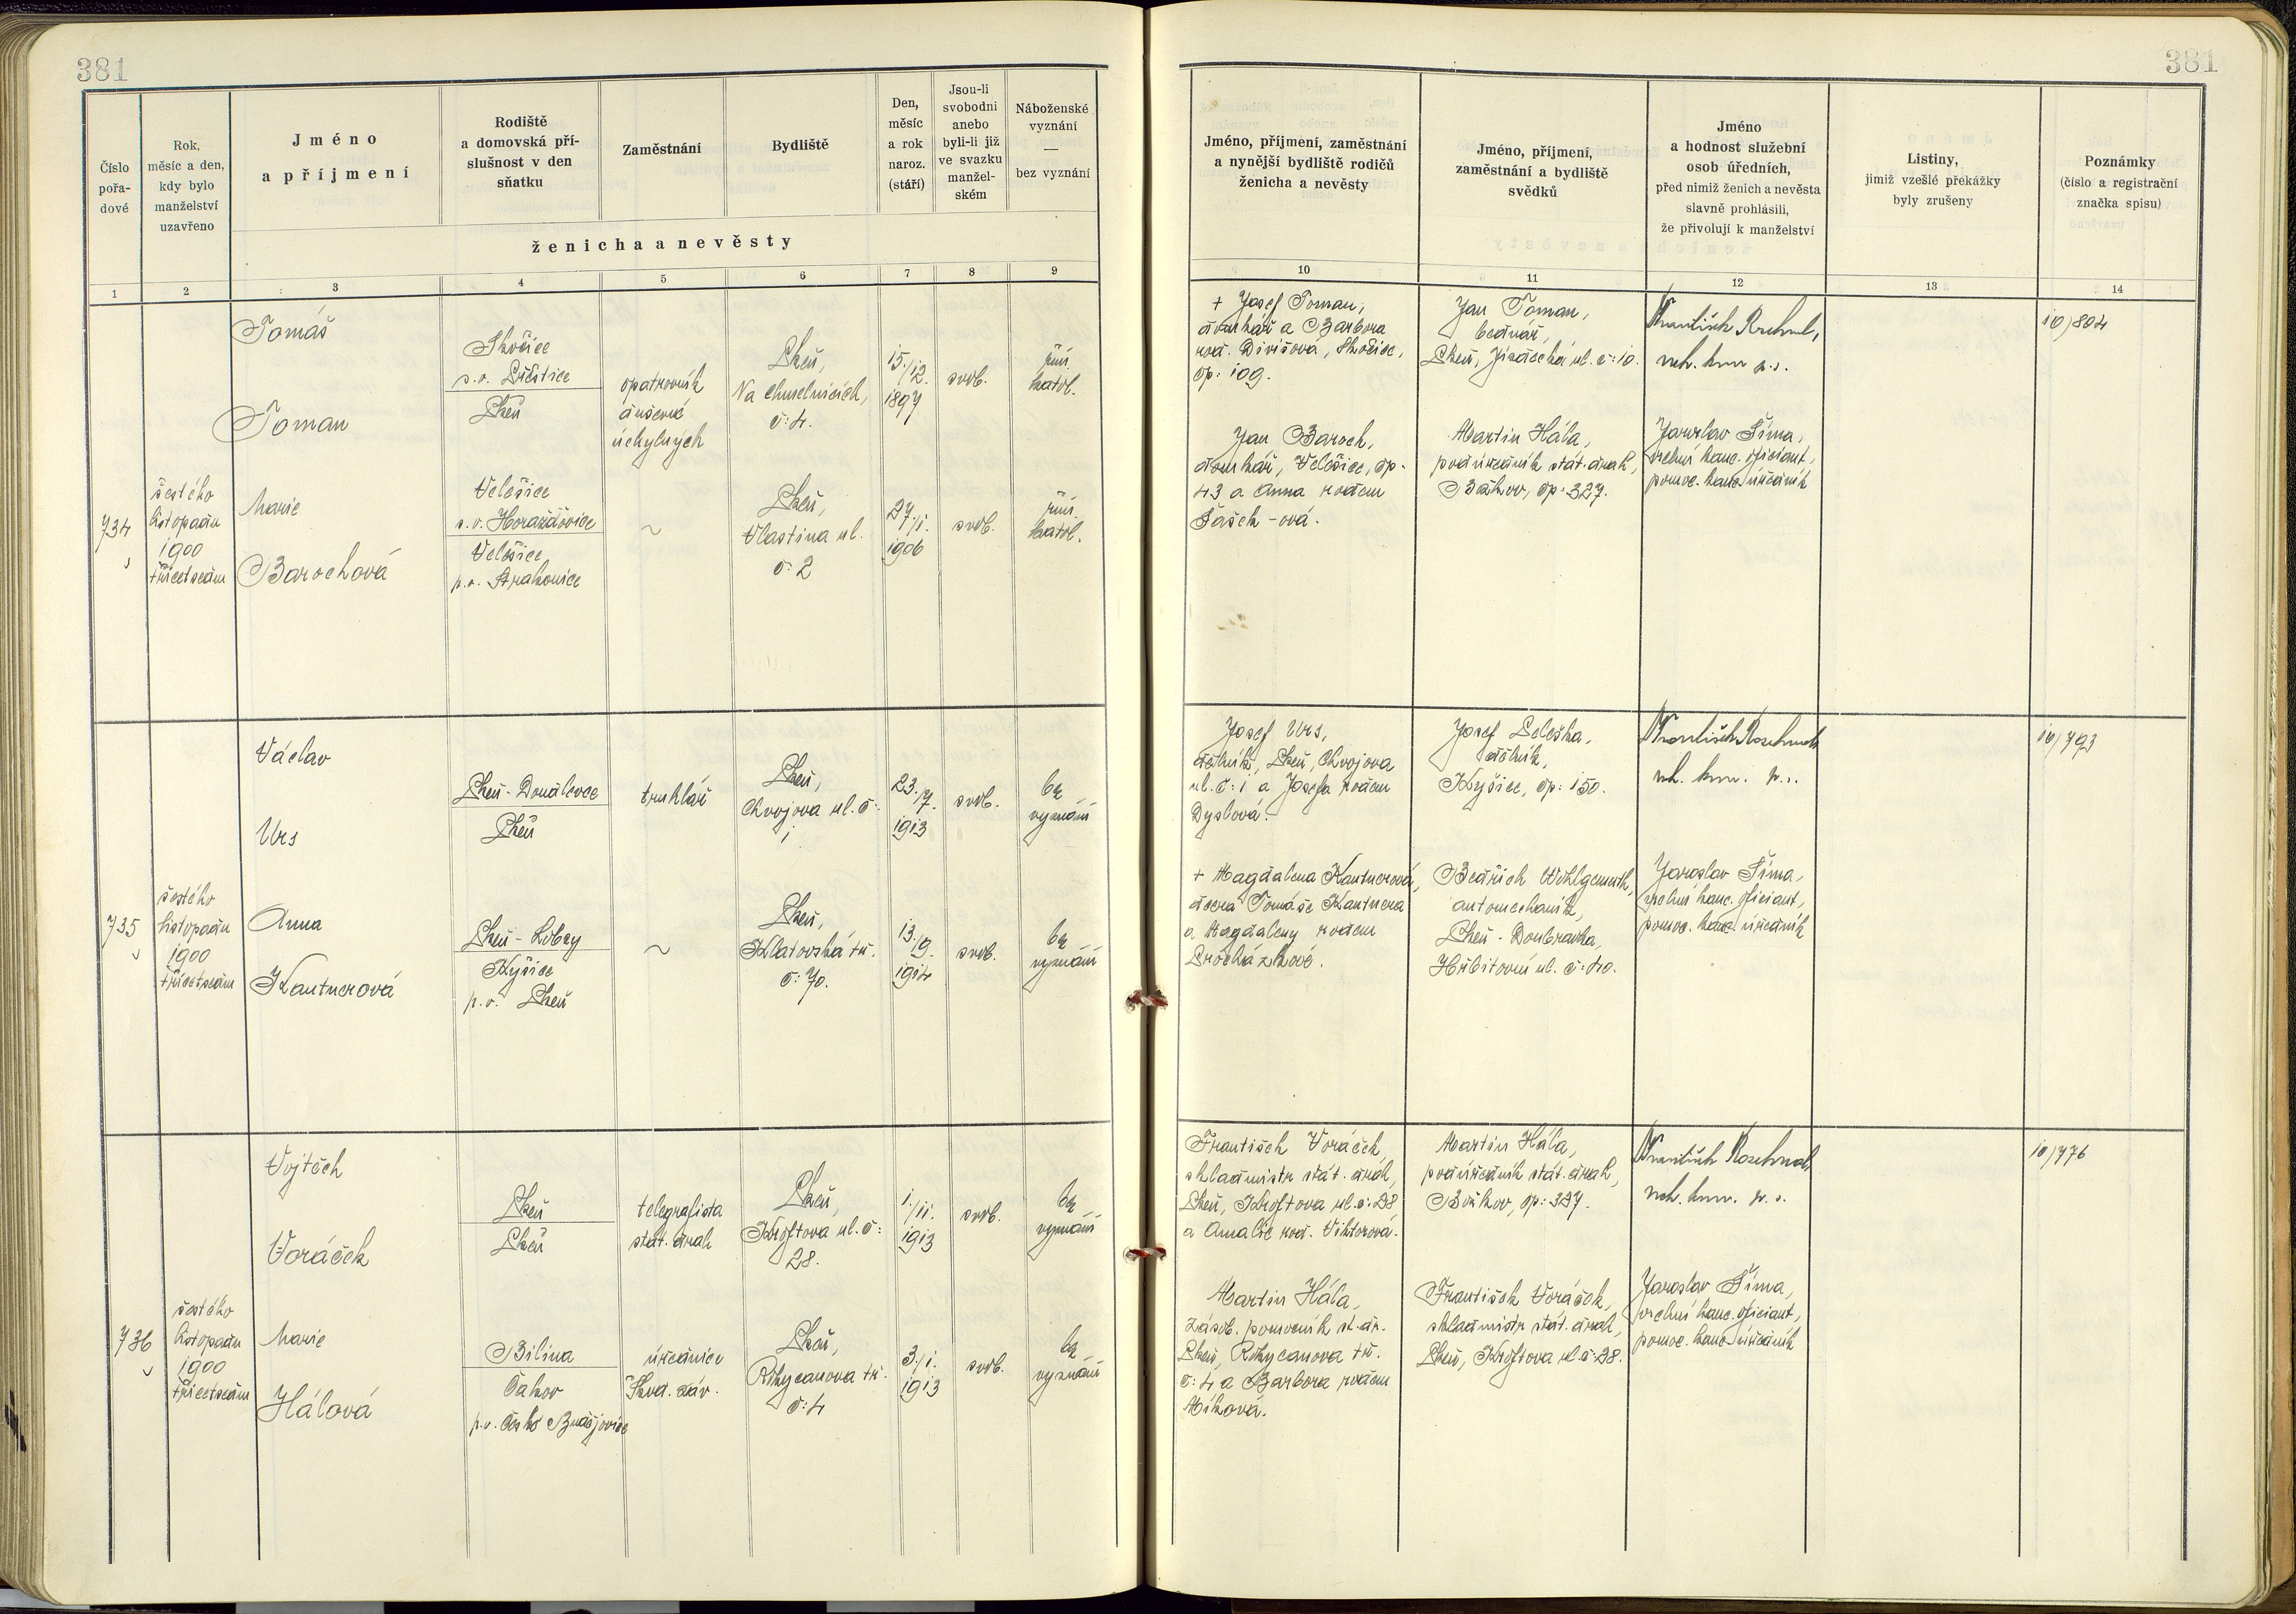 381
381
Číslo
pořa-
dové
Rok,
měsíc a den,
kdy bylo
manželství
uzavřeno
Jméno
a příjmení
Rodiště
a domovská pří-
slušnost v den
sňatku
Zaměstnání
Bydliště
Den,
měsíc
a rok
naroz.
(stáří)
Jsou-li
svobodni
anebo
byli-li již
ve svazku
manžel-
ském
Náboženské
vyznání
—
bez vyznání
ženicha a nevěsty
Jméno, příjmení, zaměstnání
a nynější bydliště rodičů
ženicha a nevěsty
Jméno, příjmení,
zaměstnání a bydliště
svědků
Jméno
a hodnost služební
osob úředních,
před nimiž ženich a nevěsta
slavně prohlásili,
že přivolují k manželství
Listiny,
jimiž vzešlé překážky
byly zrušeny
Poznámky
(číslo a registrační
značka spisu)
1 2 3 4 5 6 7 8 9 10 11 12 13 14
734
šestého
listopadu
1900
třicetsedm
Tomáš
Toman
Skočice
s.o. Přeštice
Plzeň
opatrovník
duševně
úchylných
Plzeň,
Na Chmelnicích,
č: 4.
15./12.
1897
svob.
řím.
katol.
Marie
Barochová
Velešice
s.o. Horažďovice
Velešice,
p.o. Strakonice
~
Plzeň,
Vlastina ul.
č: 2
27./1.
1906
svob.
řím.
katol.
+ Josef Toman,
domkář a Barbora
roz. Divišová, Skočice,
čp: 109.
Jan Baroch,
domkář, Velešice, čp.
43 a Anna rozen
Šašek-ová.
Jan Toman,
bednář,
Plzeň, Jízdecká ul. č: 10.
Martin Hála,
podúředník stát. drah,
Božkov, čp: 327.
František
Jaroslav Šíma,
vrchní kanc. oficiant,
pomoc. kanc. úředník
10/804
735
šestého
listopadu
1900
třicetsedm
Václav
Urs
Plzeň-Doudlevce
Plzeň
truhlář
Plzeň,
Chvojova ul. č:
1
23./7.
1913
svob.
bez
vyznání
Anna
Kantnerová
Plzeň-Lobzy
Kyšice
p.o. Plzeň
~
Plzeň,
Klatovská tř.
č: 70.
13./9.
1914
svob.
bez
vyznání
Josef Urs,
dělník, Plzeň, Chvojova
ul. č: 1 a Josefa rozen
Dyslová.
+ Magdalena Kantnerová,
dcera Tomáše Kantnera
a Magdaleny rozen
Procházkové.
Josef Peleška,
dělník,
Kyšice, čp: 150.
Bedřich Wohlgemuth,
automechanik,
Plzeň-Doubravka,
Hřbitovní ul. č: 40.
František
Jaroslav Šíma,
vrchní kanc. oficiant,
pomoc. kanc. úředník
10/793
736
šestého
listopadu
1900
třicetsedm
Vojtěch
Voráček
Plzeň
Plzeň
telegrafista
stát. drah
Plzeň,
Kroftova ul. č:
28.
1./11.
1913
svob.
bez
vyznání
Marie
Hálová
Bilina
Čakov
p.o. České Budějovice
úřednice
Škod. záv.
Plzeň,
Rokycanova tř.
č: 4
3./1.
1913
svob.
bez
vyznání
František Voráček,
skladmistr stát. drah,
Plzeň, Kroftova ul. č: 28
a Amalie roz. Viktorová.
Martin Hála,
zásob. pomocník st. dr.
Plzeň, Rokycanova tř.
č: 4 a Barbora rozen
Míková.
Martin Hála,
podúředník stát. drah,
Božkov, čp: 327.
František Voráček,
skladmistr stát. drah,
Plzeň, Kroftova ul. č: 28.
František
Jaroslav Šíma,
vrchní kanc. oficiant,
pomoc. kanc. úředník
10/776